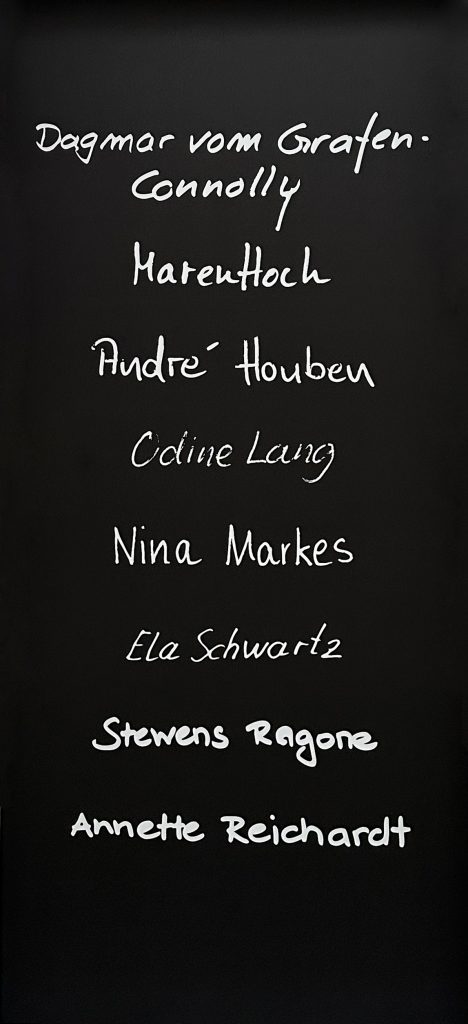 Dagmar vom Grafen-
Connolly
Maren Hoch
André Houben
Odine Lang
Nina Markes
Ela Schwartz
Stewens Ragone
Annette Reichardt